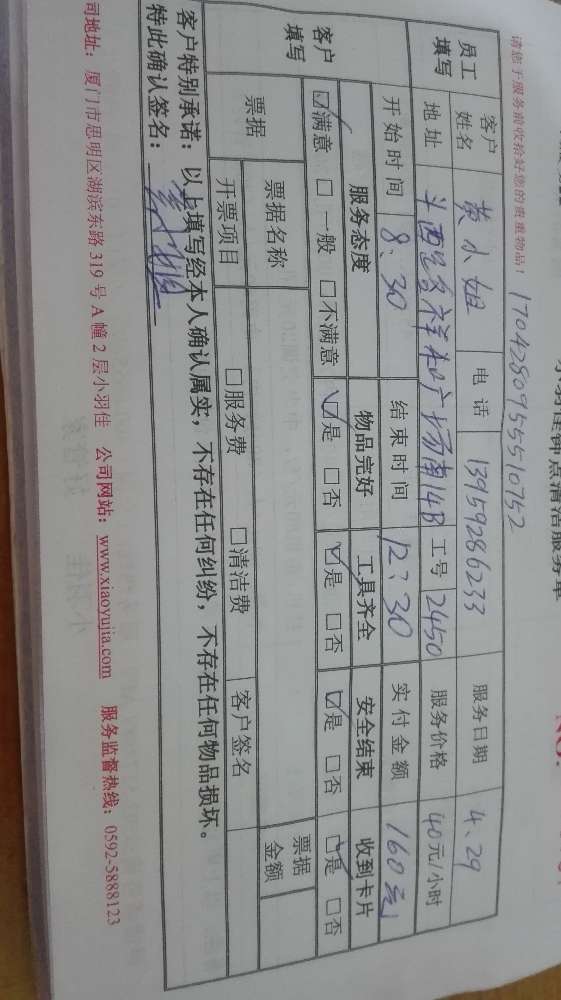 小羽佳钟点清洁服务单 NO.
请您于服务前收拾好您的贵重物品！ 1704280955510752
员工填写
客户姓名 黄小姐 电话 13959286233 服务日期 4、29
地址 斗西路禾祥和广场南14B 工号 2450 服务价格 40元/小时
开始时间 8、30 结束时间 12、30 实付金额 160元
客户填写
服务态度 物品完好 工具齐全 安全结束 收到卡片
☑满意 □一般 □不满意 ☑是 □否 ☑是 □否 ☑是 □否 ☑是 □否
票据 票据名称 票据金额
开票项目 □服务费 □清洁费 客户签名
客户特别承诺：以上填写经本人确认属实，不存在任何纠纷，不存在任何物品损坏。
特此确认签名：
司地址：厦门市思明区湖滨东路 319 号 A 幢 2 层小羽佳 公司网站：www.xiaoyujia.com 服务监督热线：0592-5888123